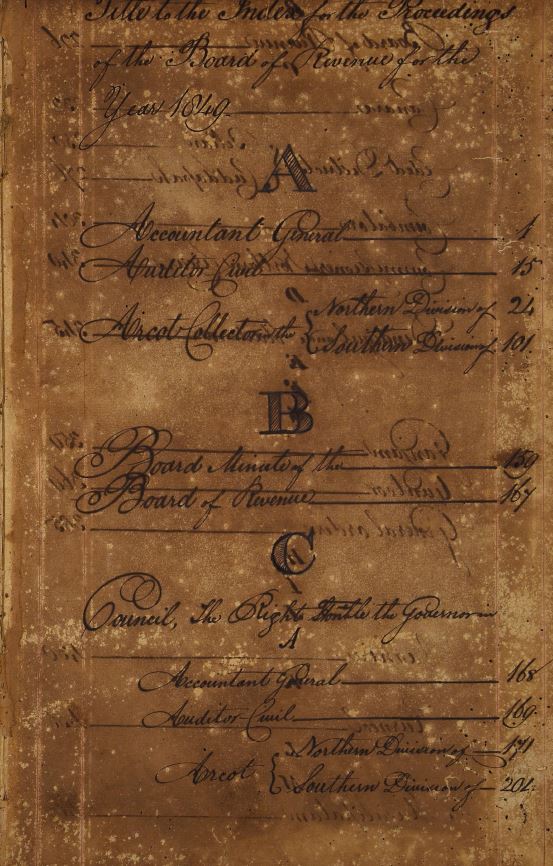 Title to the Index for the Proceedings
of the Board of Revenue for the
Year 1849
A
Accountant General 1
Auditor Civil 15
Arcot Collector in the { Northern Division of 24
Southern Division of 101
B
Board Minute of the 159
Board of Revenue 167
C
Council, The Right Honble the Governor in
A
Accountant General 168
Auditor Civil 169
Arcot { Northern Division of 171
Southern Division of 201